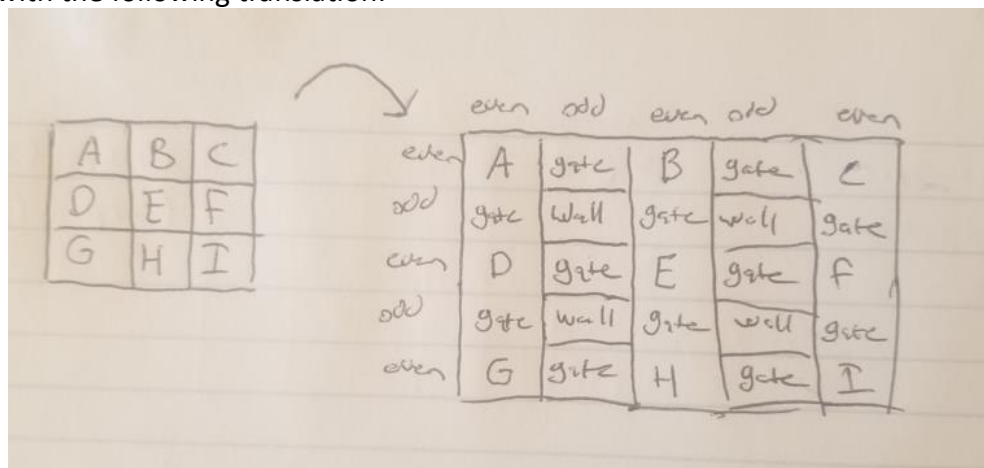 with the following translation:
even odd even odd even
A B C
even A gate B gate C
D E F
odd gate Wall gate wall gate
G H I
even D gate E gate F
odd gate wall gate wall gate
even G gate H gate I